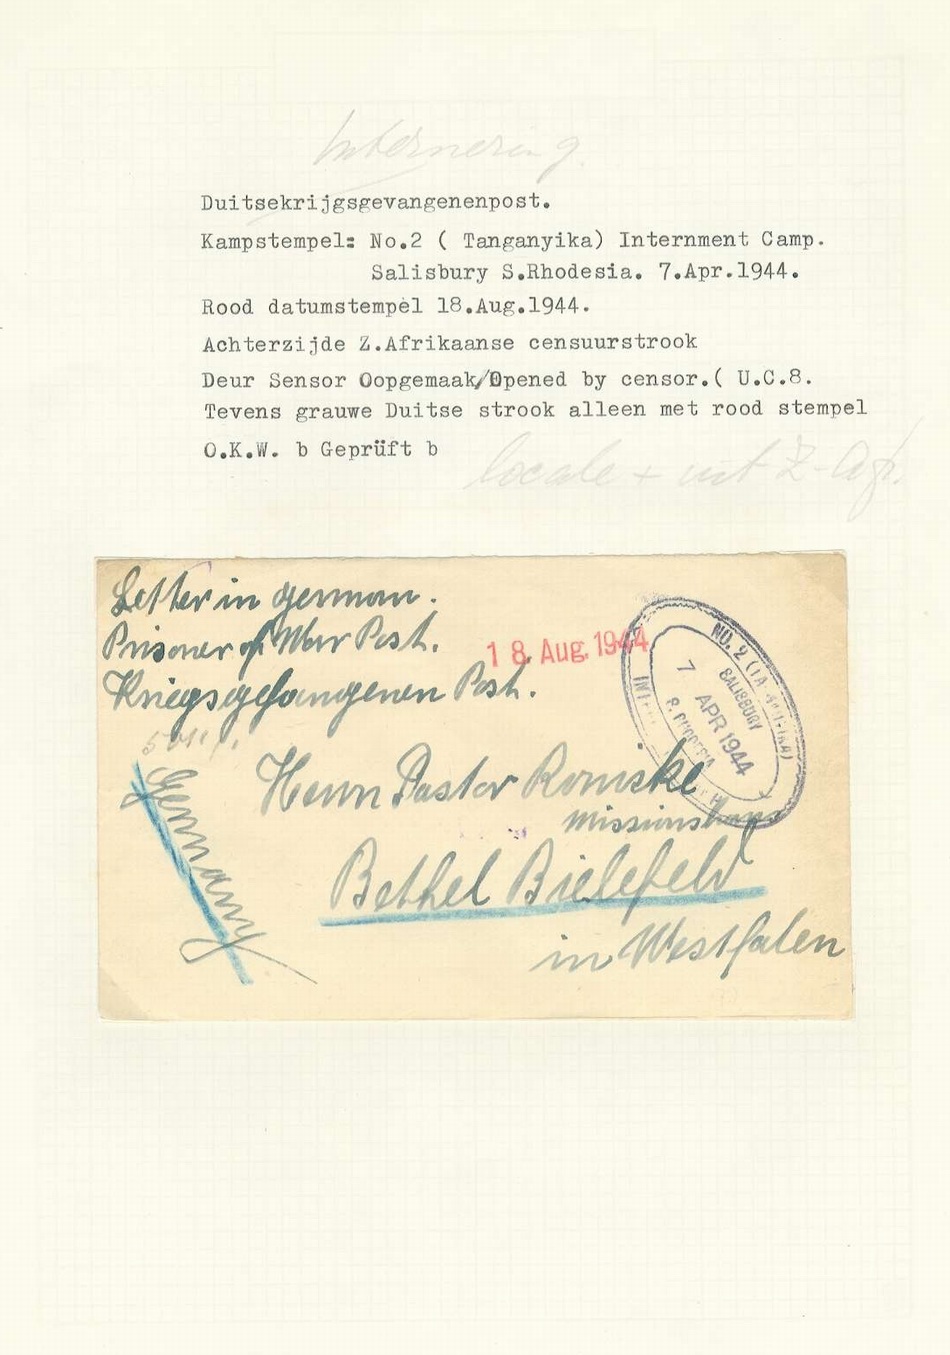 Internering.
Duitsekrijgsgevangenenpost.
Kampstempel: No.2 ( Tanganyika) Internment Camp.
Salisbury S.Rhodesia. 7.Apr.1944.
Rood datumstempel 18.Aug.1944.
Achterzijde Z.Afrikaanse censuurstrook
Deur Sensor Oopgemaak/Opened by censor.( U.C.8.
Tevens grauwe Duitse strook alleen met rood stempel
O.K.W. b Geprüft b
locale + uit Z-Afr.
Letter in german.
Prisoner of War Post.
Kriegsgefangenen Post.
18. Aug. 1944
NO. 2 (TANGANYIKA)
SALISBURY
7 APR 1944
S. RHODESIA
Germany
Herrn Pastor Ronicke
Missionshaus
Bethel Bielefeld
in Westfalen